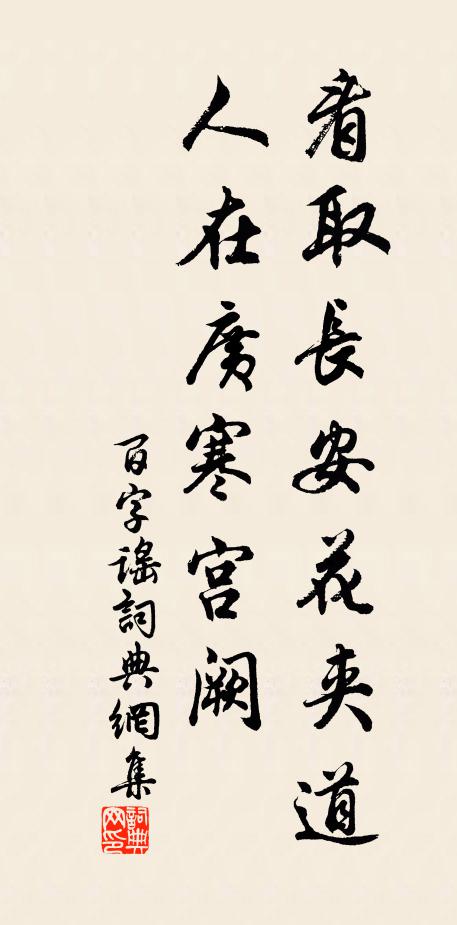 看取長安花夾道
人在廣寒宮闕
百字謠詞典網集
詞典
网印